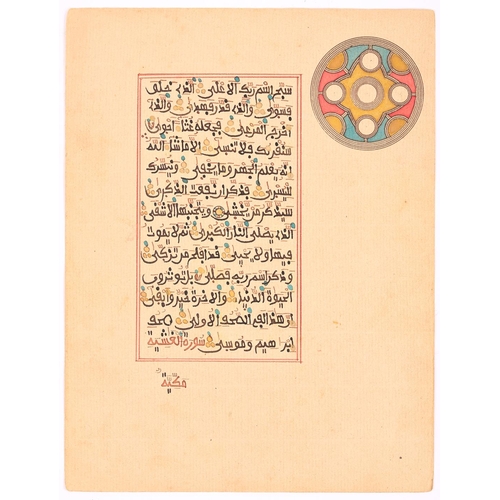 سبح اسم ربك الاعلى الذي خلق
فسوى والذي قدر فهدى والذي
اخرج المرعى فجعله غثاء احوى
سنقرئك فلا تنسى الا ما شاء الله
انه يعلم الجهر وما يخفى ونيسرك
لليسرى فذكر ان نفعت الذكرى
سيذكر من يخشى ويتجنبها الاشقى
الذي يصلى النار الكبرى ثم لا يموت
فيها ولا يحيى قد افلح من تزكى
وذكر اسم ربه فصلى بل توثرون
الحيوة الدنيا والاخرة خير وابقى
ان هذا لفي الصحف الاولى صحف
ابرهيم وموسى سورة الغشية
مكية